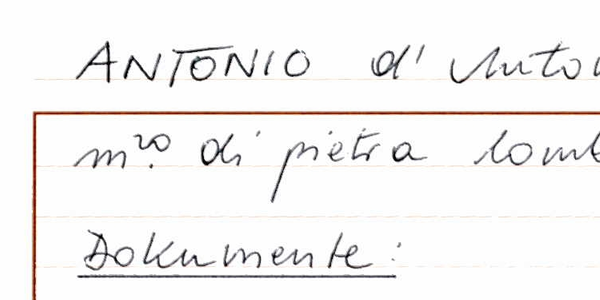 ANTONIO d' Anto
m.ʳᵒ di pietra lomb
Dokumente: